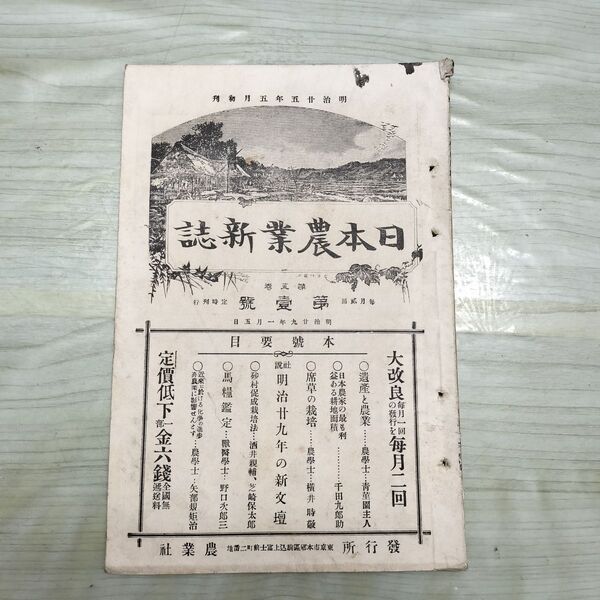 明治廿五年五月初刊
日本農業新誌
第五巻
毎月貳回
第壹號
定時刊行
明治廿九年一月五日
本號要目
大改良毎月一回の發行を毎月二回
○遺産と農業……農學士…青菫園主人
○日本農家の最も利益ある耕地面積…………千田九郎助
○席草の栽培……農學士…横井時敬
社説 明治廿九年の新文壇
○砂村促成栽培法…酒井親輔、芝崎保太郎
○馬糧鑑定…獸醫學士…野口次郎三
農學士…矢部規矩治
定價低下一部金六錢全國無遞送料
發行所
東京市本郷區駒込上富士前町二番地
農業社